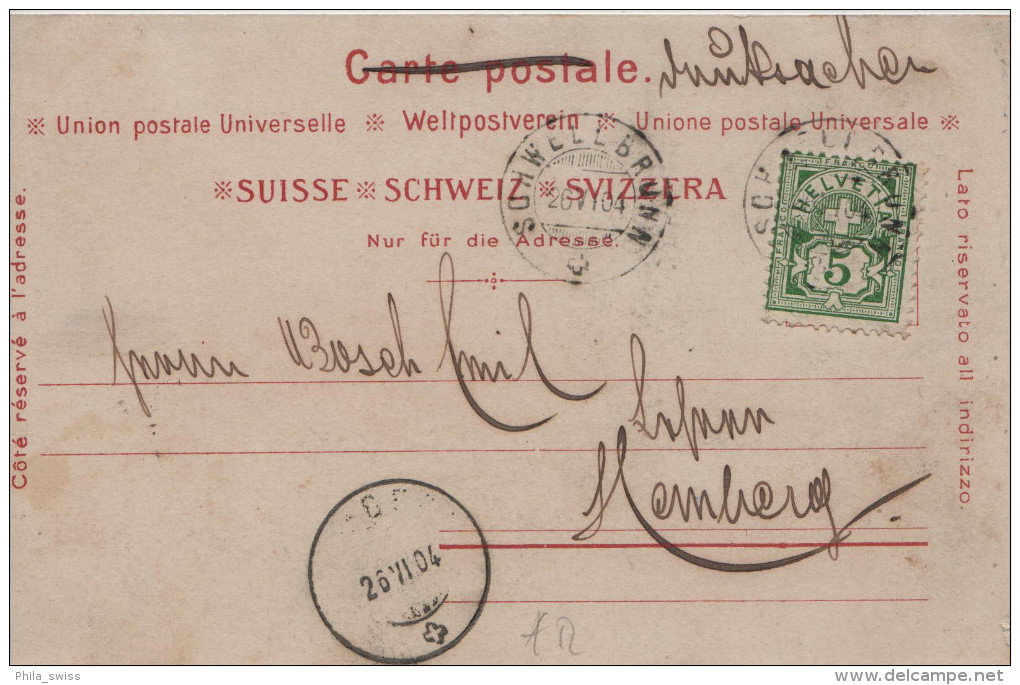 Carte postale. Drucksachen
※ Union postale Universelle ※ Weltpostverein ※ Unione postale Universale ※
※ SUISSE ※ SCHWEIZ ※ SVIZZERA
Nur für die Adresse.
Côté réservé à l'adresse.
Lato riservato all indirizzo.
SCHWELLBRUNN
26 VI 04
FRANCO
HELVETIA
5
Bosch Emil
Hemberg
26 VI 04
Phila_swiss
delcampe.net